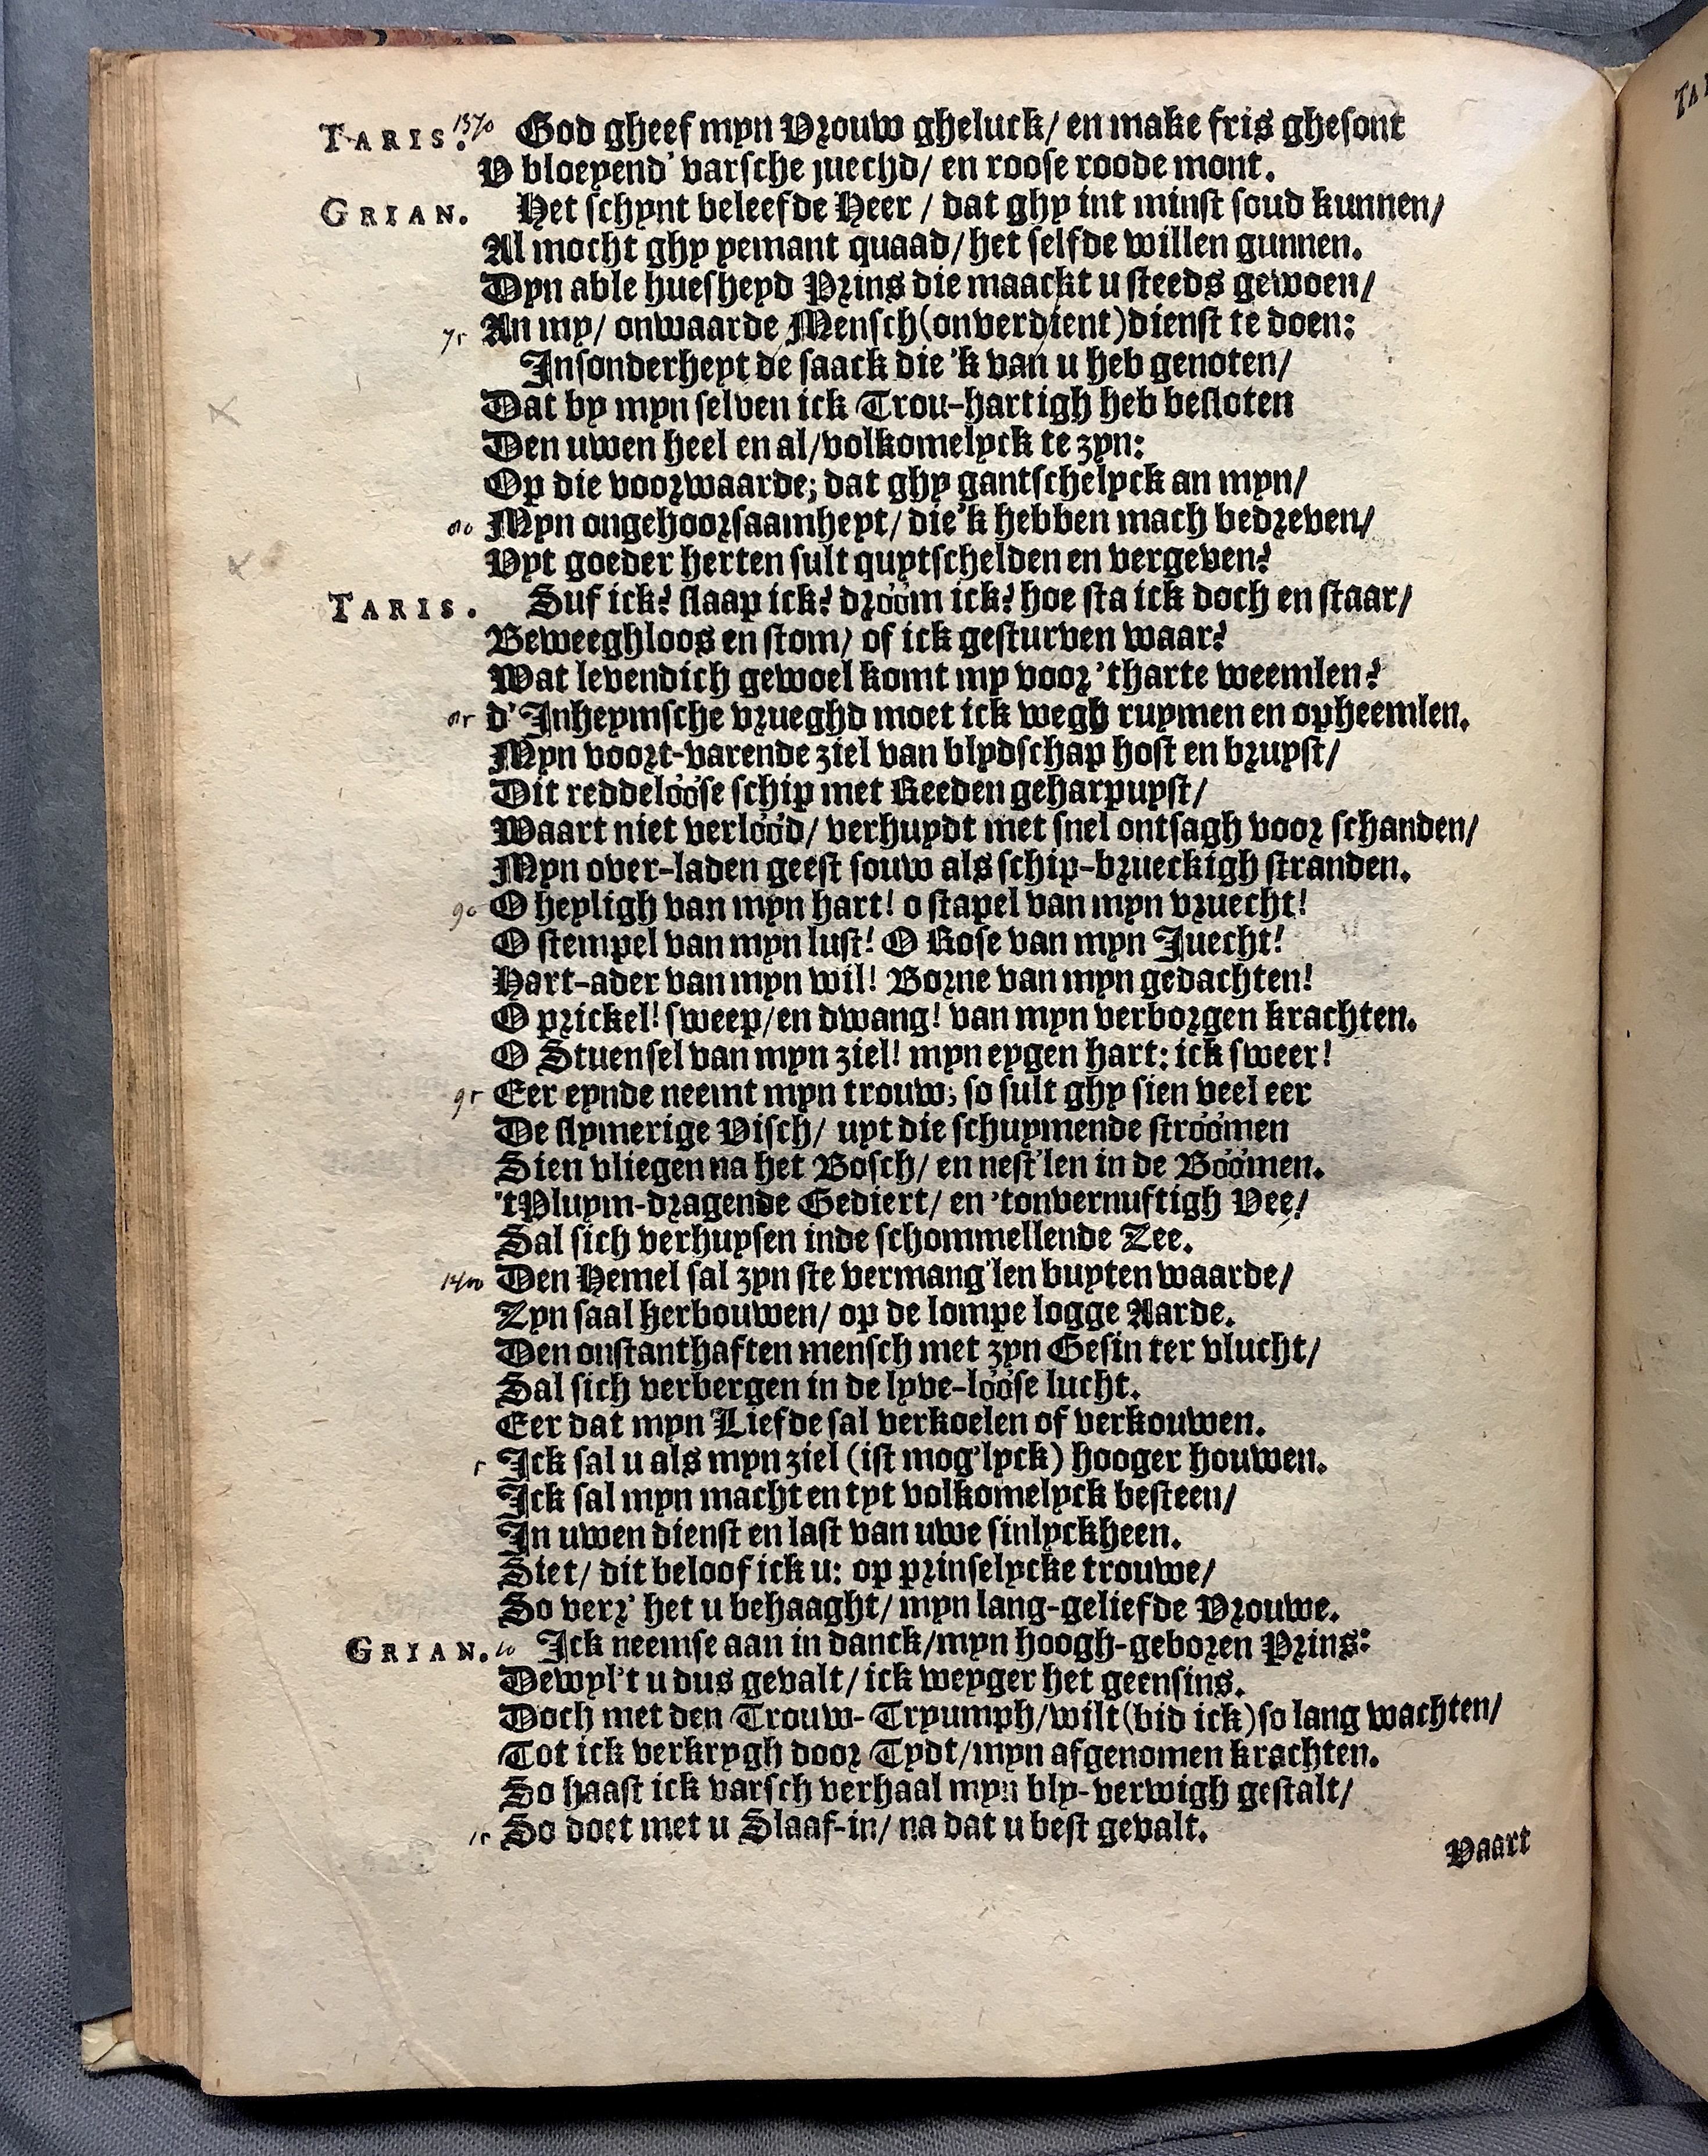 TARIS. 1370 God gheef myn Vrouw gheluck/ en make fris ghesont
V bloeyend' varsche juechd/ en roose roode mont.
GRIAN. Het schynt beleefde Heer / dat ghy int minst soud kunnen/
Al mocht ghy yemant quaad/ het selfde willen gunnen.
Dyn able huesheyd Prins die maackt u steeds gewoen/
75 An my/ onwaarde Mensch (onverdient) dienst te doen:
Insonderheyt de saack die 'k van u heb genoten/
Dat by myn selven ick Trou-hartigh heb besloten
Den uwen heel en al/ volkomelyck te zyn:
Op die voorwaarde; dat ghy gantschelyck an myn/
80 Myn ongehoorsaamheyt/ die 'k hebben mach bedreven/
Vyt goeder herten sult quytschelden en vergeven?
TARIS. Suf ick? slaap ick? dróóm ick? hoe sta ick doch en staar/
Beweeghloos en stom/ of ick gesturven waar?
Wat levendich gewoel komt my voor 'tharte weemlen?
85 d'Inheymsche vrueghd moet ick wegh ruymen en opheemlen.
Myn voort-varende ziel van blydschap host en bruyst/
Dit reddelóóse schip met Reeden geharpuyst/
Waart niet verlóód/ verhuydt met snel ontsagh voor schanden/
Myn over-laden geest souw als schip-brueckigh stranden.
90 O heyligh van myn hart! o stapel van myn vruecht!
O stempel van myn lust! O Rose van myn Juecht!
Hart-ader van myn wil! Borne van myn gedachten!
O prickel! sweep/ en dwang! van myn verborgen krachten.
O Stuensel van myn ziel! myn eygen hart: ick sweer!
95 Eer eynde neemt myn trouw; so sult ghy sien veel eer
De slymerige Visch/ uyt die schuymende stróómen
Sien vliegen na het Bosch/ en nest'len in de Bóómen.
'tPluym-dragende Gediert/ en 'tonvernuftigh Vee/
Sal sich verhuysen inde schommellende Zee.
1400 Den Hemel sal zyn ste vermang'len buyten waarde/
Zyn saal herbouwen/ op de lompe logge Aarde.
Den onstanthaften mensch met zyn Gesin ter vlucht/
Sal sich verbergen in de lyve-lóóse lucht.
Eer dat myn Liefde sal verkoelen of verkouwen.
5 Ick sal u als myn ziel (ist mog'lyck) hooger houwen.
Ick sal myn macht en tyt volkomelyck besteen/
In uwen dienst en last van uwe sinlyckheen.
Siet/ dit beloof ick u: op prinselycke trouwe/
So verr' het u behaaght/ myn lang-geliefde Vrouwe.
GRIAN. 10 Ick neemse aan in danck/ myn hoogh-geboren Prins:
Dewyl't u dus gevalt/ ick weyger het geensins.
Doch met den Trouw-Tryumph/ wilt (bid ick) so lang wachten/
Tot ick verkrygh door Tydt/ myn afgenomen krachten.
So haast ick varsch verhaal myn bly-verwigh gestalt/
15 So doet met u Slaaf-in/ na dat u best gevalt.
Vaart